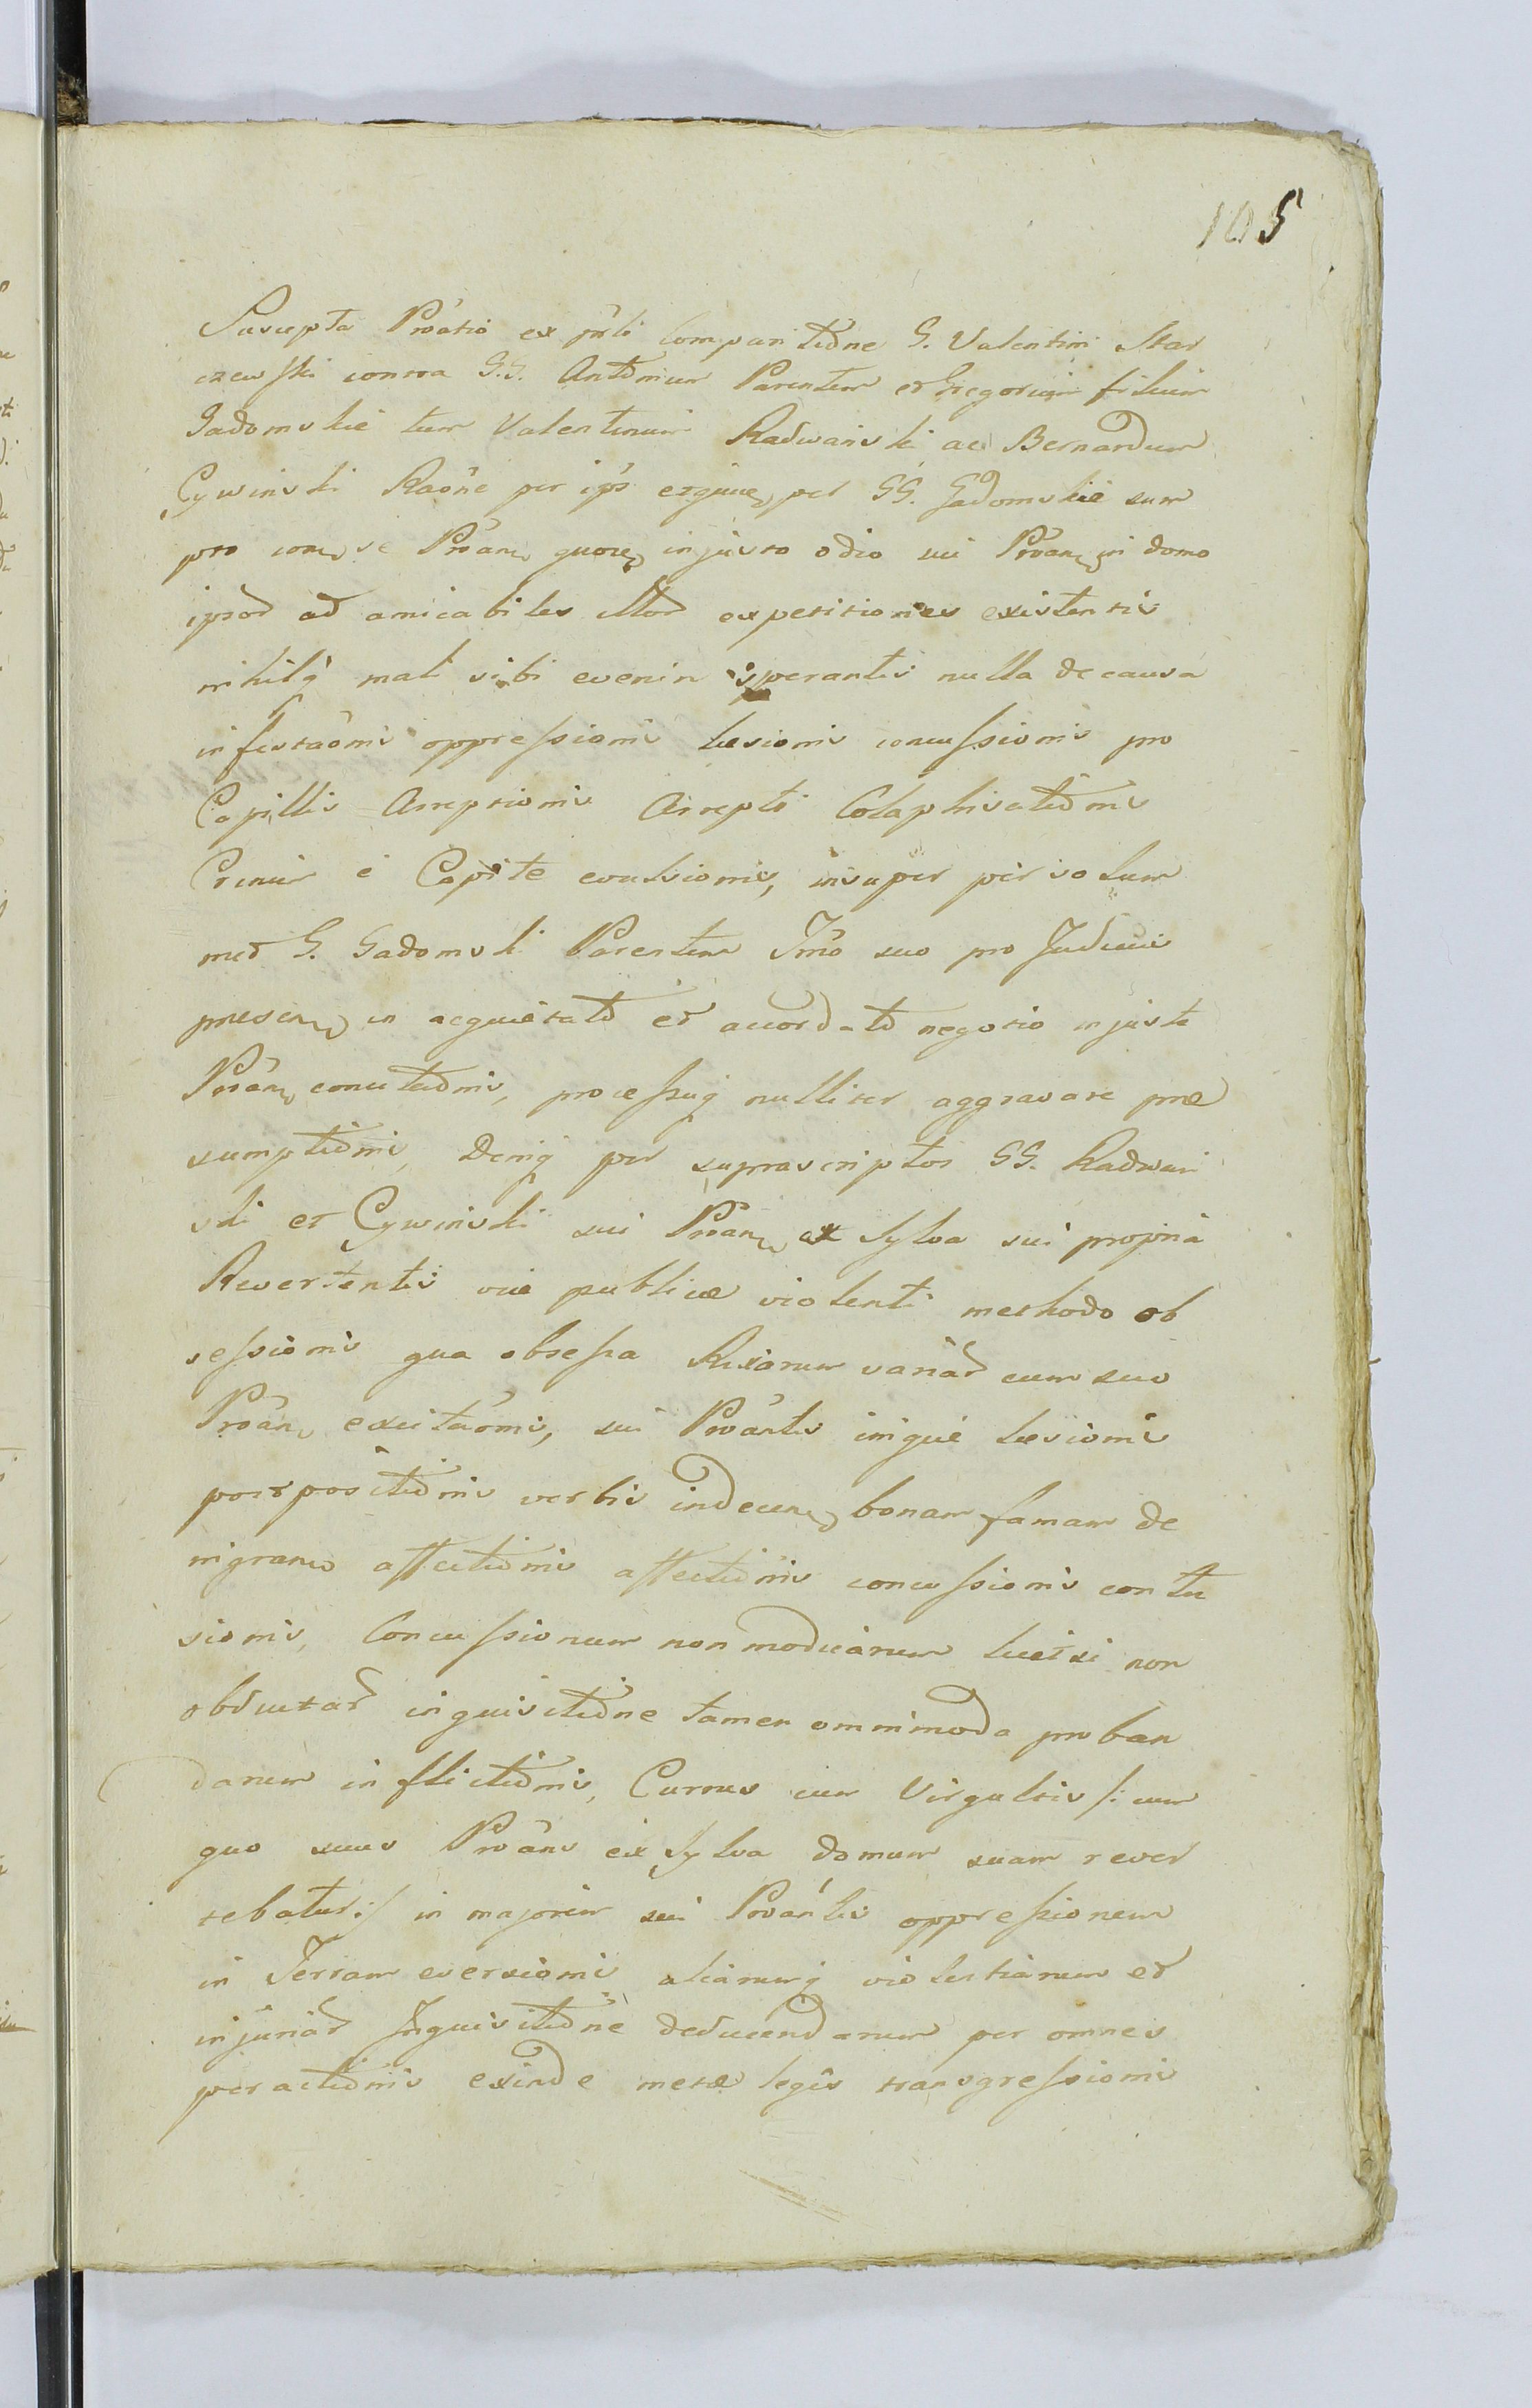 105
Suscepta Proatio ex prli Comparitione G. Valentini Star
czewski contra G.G. Antonium Parentem et Gregorium filium
Gadomskie tum Valentinum Radwanski ac Bernardum
Cywinski Raône per ips per GG. Gadomskie
pro se Proan injusto odio sui Proan in domo
ipsor ad amicabiles illor expetitiones existentis
nihilq mali sibi eveniri sperantis nulla de causa
infestaônis oppressionis læsionis concussionis pro
Capillis Arreptionis Arrepti Colaphisationis
Crinium e Capite evulsionis, insuper per solum
met G. Gadomski Parentem Imo suo pro Judicii
in acquietato et accordato negotio injuste
Proan processuq nulliter aggravare præ
sumptionis, Deniq per suprascriptos GG. Radwan
ski et Cywinski sui Proan ex Sylva sui propria
Revertentis viæ publicæ violenti methodo ob
sessionis qua obsessa Rixarum variar cum suo
Proan excitaônis, sui Proântis iniquè læsionis
postpositionis verbis indecen bonam famam de
nigran affectionis affectionis concussionis contu
sionis, Concussionum non modicarum licet si non
obductar inquisitione tamen omnimoda proban
darum inflictionis, Currus cum Virgultis /: cum
quo suus Proâns ex Sylva domum suam rever
tebatur :/ in majorem sui Proântis oppressionem
in Terram eversionis aliarumq violentiarum et
injuriar Inquisitione deducendarum per omnes
peractionis exinde metæ legis transgressionis